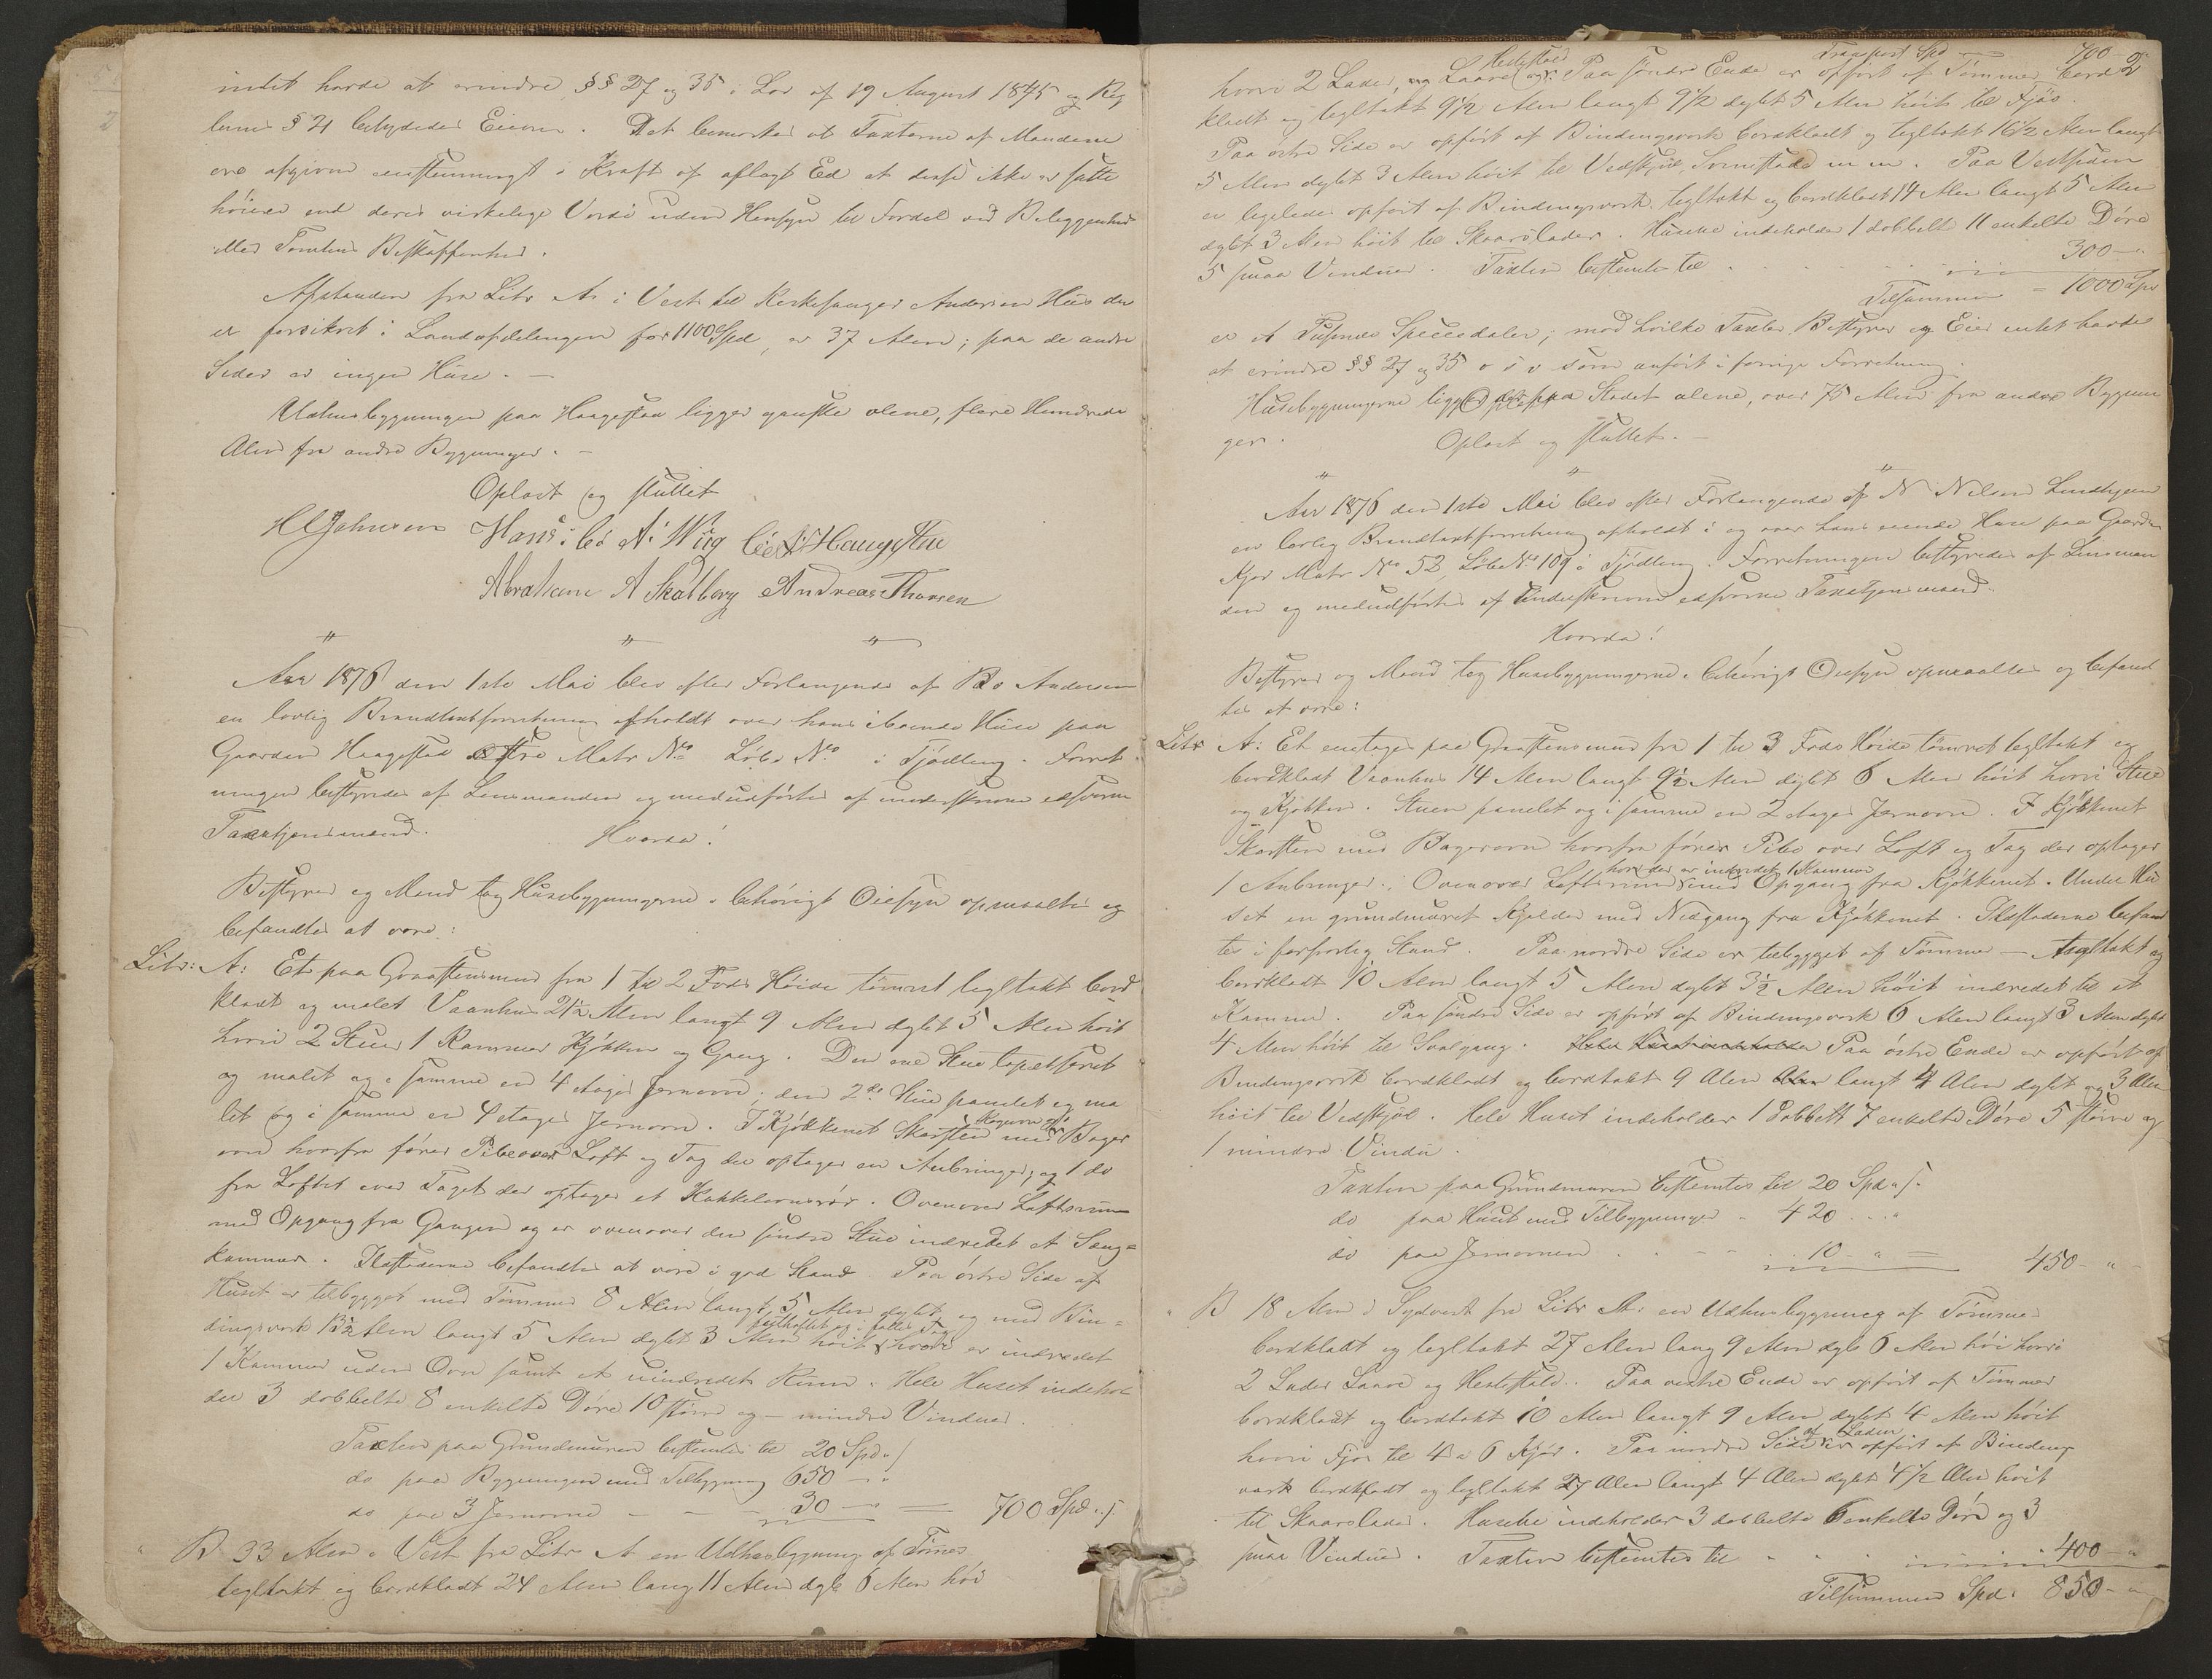 intet havde at erindre §§ 27 og 35 i Lov af 19 August 1845 og Reg
lem: § 21 betydedes Eieren. Det bemærkes at Taxterne af Mændene
ere afgivne eenstemmigt i Kraft af aflagt Ed at disse ikke er satte
høiere end deres virkelige Værdi uden Hensyn til Fordel ved Beliggenhed
eller Tomtens Beskaffenhed.
Afstanden fra Litr A. i Vest til Kirkesanger Andersen Huus der
er forsikret i Landafdelingen for 1100 Spd, er 37 Alen; paa de andre
Sider er ingen Huse. —
Udhusbygningen paa Haagestad ligger ganske alene, flere Hundrede
Alen fra andre Bygninger. —
Oplæst og sluttet
H C Johnsen Hans A. Wiig Haugstad
Abraham A Skalberg Andreas Thoresen
" " "
Aar 1876 den 1ste Mai blev efter Forlangende af Bo Andersen
en lovlig Brandtaxtforretning afholdt over hans iboende Huse paa
Gaarden Haagestad østre Matr No Løbe No i Tjødling. Forret-
ningen bestyredes af Lensmanden og medudførtes af underskrevne edsvorne
Taxtjensmænd. Hvorda!
Bestyrer og Mænd tog Husebygningerne i behørigt Øiesyn opmaalte og
befandtes at være:
Litr: A: Et paa Graasteensmuur fra 1 til 2 Fods Høide tømret tegltakt bord
klædt og malet Vaanhus 21½ Alen langt 9 Alen dybt 5 Alen høit
hvori 2 Stuer 1 Kammer Kjøkken og Gang. Den ene Stue tapetseret
og malet og i samme en 4 etages Jernovn; den 2den Stue panelet og ma
let og i samme en 4 etages Jernovn. I Kjøkkenet Skorsten med Kogeovn og Bager
ovn hvorfra fører Pibe over Loft og Tag der optager en Anbringer; og 1 do
fra Loftet over Taget der optager et Kakkelovnsrør. Ovenover Loftsrum
med Opgang fra Gangen og er ovenover den søndre Stue indredet et Seng=
kammer. Ildstederne befandtes at være i god Stand. Paa østre Side af
Huset er tilbygget med Tømmer 8 Alen langt 5 Alen dybt og med Bin=
dingsverk 13½ Alen langt 5 Alen dybt 3 Alen høit tegltaktet og i fælles Tag hvori er indredet
1 Kammer uden Ovn samt et uindredet Rum. Hele Huset indehol
der 3 dobbelte 8 enkelte Døre 10 større og — mindre Vinduer.
Taxten paa Grundmuren bestemtes til 20 Spd "
do paa Bygningen med Tilbygning 650 — "
do paa 3 Jernovne — — 30 — " = 700 Spd "
" B 33 Alen i Vest fra Litr A en Udhusbygning af Tømer
tegltakt og bordklædt 24 Alen lang 11 Alen dyb 6 Alen høi
Transport Spd — 700 — "
2
hvori 2 Lader, og Laave Hestestald og. Paa søndre Ende er opført af Tømmer bord
klædt og tegltakt 9½ Alen langt 9½ dybt 5 Alen høit til Fjøs.
Paa østre Side er opført af Bindingsverk bordklædt og tegltakt 16½ Alen langt
5 Alen dybt 3 Alen høit til Vedskjul, Svinestald m m. Paa Vestsiden
er ligeledes opført af Bindingsverk tegltakt og bordklædt 14 Alen langt 5 Alen
dybt 3 Alen høit til Skaarslader. Husene indeholder 1 dobbelt 11 enkelte Døre
5 smaa Vinduer. Taxten bestemtes til . . . . . 300 — "
Tilsammen = 1000 Spd
er Et Tusinde Speciedaler; mod hvilke Taxter Bestyrer og Eier intet havde
at erindre §§ 27 og 35 o s v som anført i forrige Forretning.
Husebygningerne ligger paa Stedet alene, over 75 Alen fra andre Bygnin
ger. Oplæst og sluttet. —
" " "
Aar 1876 den 1ste Mai blev efter Forlangende af N Nilsen Lindhjem
en lovlig Brandtaxtforretning afholdt i og over hans eiende Huse paa Gaarden
Kjær Matr No 52, Løbe No 109 i Tjødling. Forretningen bestyredes af Lensman
den og medudførtes af Underskrevne edsvorne Taxtjensmænd.
Hvorda!
Bestyrer og Mænd tog Husebygningerne i behørigt Øiesyn opmaalte og befand
tes at være:
Litr A: Et eenetages paa Graasteensmuur fra 1 til 3 Fods Høide tømret tegltakt og
bordklædt Vaanhus 14 Alen langt 9½ Alen dybt 6 Alen høit hvori Stue
og Kjøkken. Stuen panelet og i samme en 2 etages Jernovn. I Kjøkkenet
Skorsten med Bagerovn hvorfra fører Pibe over Loft og Tag der optager
1 Anbringer. Ovenover Loftsrum hvor der er indredet 1 Kammer med Opgang fra Kjøkkenet. Under Hu
set en grundmuret Kjelder med Nedgang fra Kjøkkenet. Ildstederne befand
tes i forsvarlig Stand. Paa nordre Side er tilbygget af Tømmer — tegltakt og
bordklædt 10 Alen langt 5 Alen dybt 3½ Alen høit indredet til et
Kammer. Paa søndre Side er opført af Bindingsverk 6 Alen langt 3 Alen dybt
4 Alen høit til Svalgang. Hele Huset indeholder Paa østre Ende er opført af
Bindingsverk bordklædt og bordtakt 9 Alen Alen langt 4 Alen dybt og 3 Alen
høit til Vedskjul. Hele Huset indeholder 1 dobbelt 7 enkelte Døre 5 større og
1 mindre Vindu.
Taxten paa Grundmuren bestemtes til 20 Spd "
do paa Huset med Tilbygninger " 420 . . "
do paa Jernovnen . . — — 10 — " = 450 — "
" B 18 Alen i Sydvest fra Litr A: en Udhusbygning af Tømmer
bordklædt og tegltakt 27 Alen lang 9 Alen dyb 6 Alen høi hvori
2 Lader Laave og Hestestald. Paa vestre Ende er opført af Tømmer
bordklædt og bordtakt 10 Alen langt 9 Alen dybt 4 Alen høit
hvori Fjøs til 4 a 6 Kjør. Paa nordre Side af Laden er opført af Bindings
værk bordklædt og tegltakt 27 Alen langt 4 Alen dybt 4½ Alen høit
til Skaarslader. Husene indeholder 3 dobbelte 6 enkelte Døre og 3
smaa Vinduer. Taxten bestemtes til " " " 400 — "
Tilsammen Spd. 850 — "